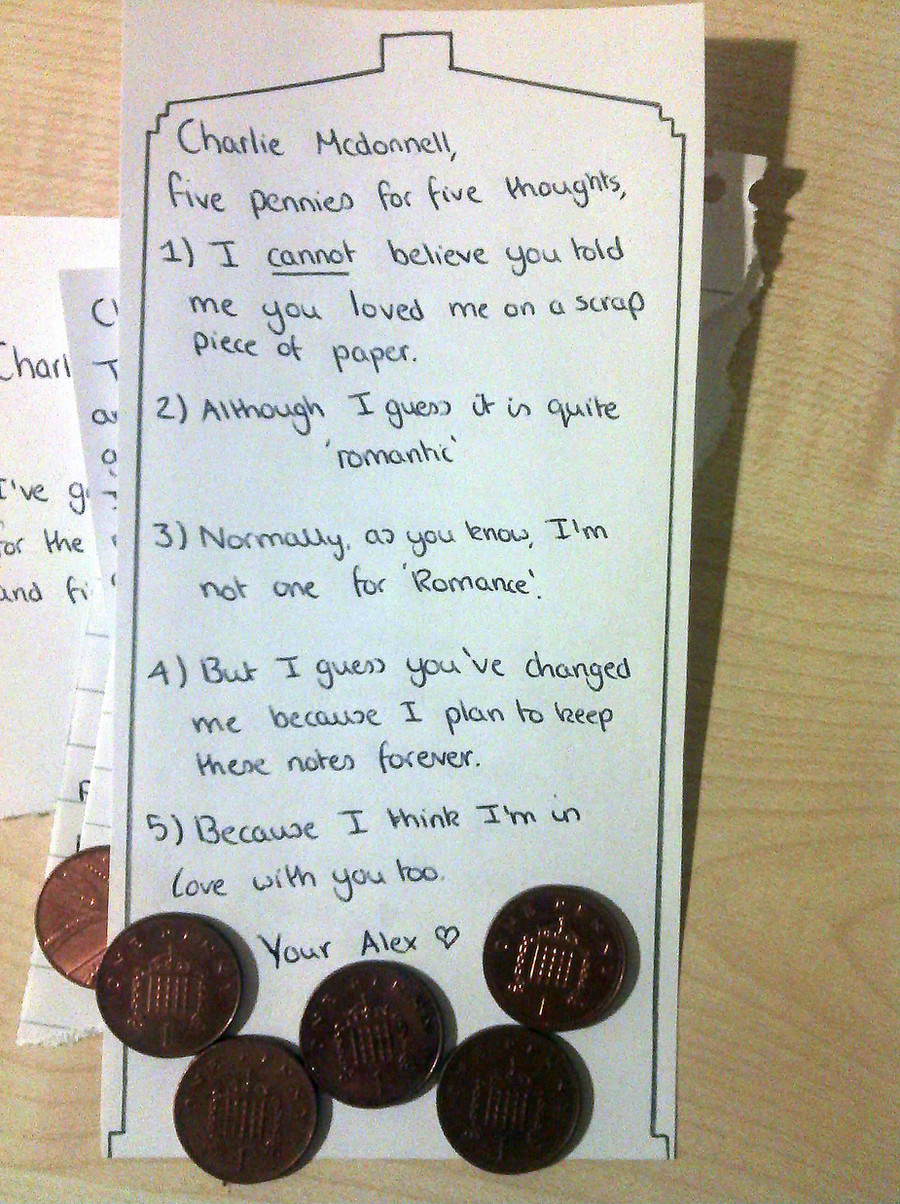 Charlie Mcdonnell,
five pennies for five thoughts,
1) I cannot believe you told
me you loved me on a scrap
piece of paper.
2) Although I guess it is quite
'romantic'
3) Normally, as you know, I'm
not one for 'Romance'.
4) But I guess you've changed
me because I plan to keep
these notes forever.
5) Because I think I'm in
love with you too.
Your Alex ♡
I've
for the
and